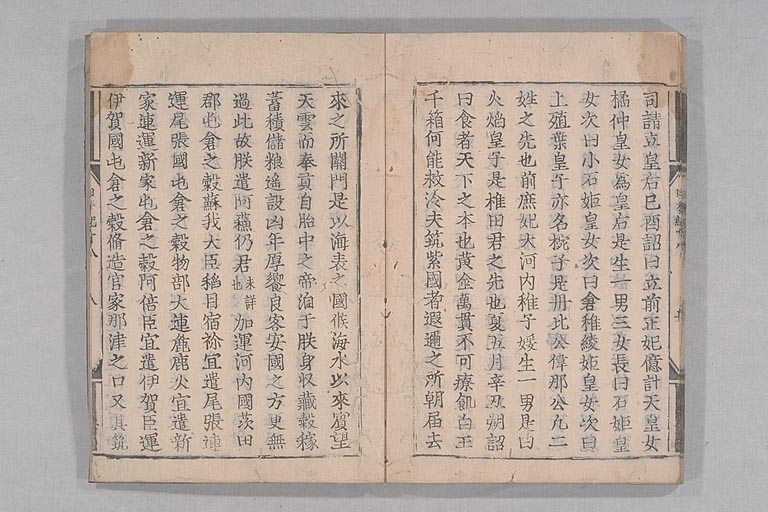 司請立皇后己酉詔曰立前正妃億計天皇女
橘仲皇女為皇后是生一男三女長曰石姫皇
女次曰小石姫皇女次曰倉稚綾姫皇女次曰
上殖葉皇子亦名椀子是丹比公偉那公凡二
姓之先也前庶妃大河内稚子媛生一男是曰
火焰皇子是椎田君之先也夏五月辛丑朔詔
曰食者天下之本也黄金萬貫不可療飢白玉
千箱何能救冷夫筑紫國者遐邇之所朝届去
來之所關門是以海表之國候海水以來賓望
天雲而奉貢自胎中之帝洎于朕身収藏穀稼
蓄積儲粮遥設凶年厚饗良客安國之方更無
過此故朕遣阿蘇仍君未詳也加運河内國茨田
郡屯倉之穀蘇我大臣稲目宿祢宜遣尾張連
運尾張國屯倉之穀物部大連麁鹿火宜遣新
家連運新家屯倉之穀阿倍臣宜遣伊賀臣運
伊賀國屯倉之穀脩造官家那津之口又其筑